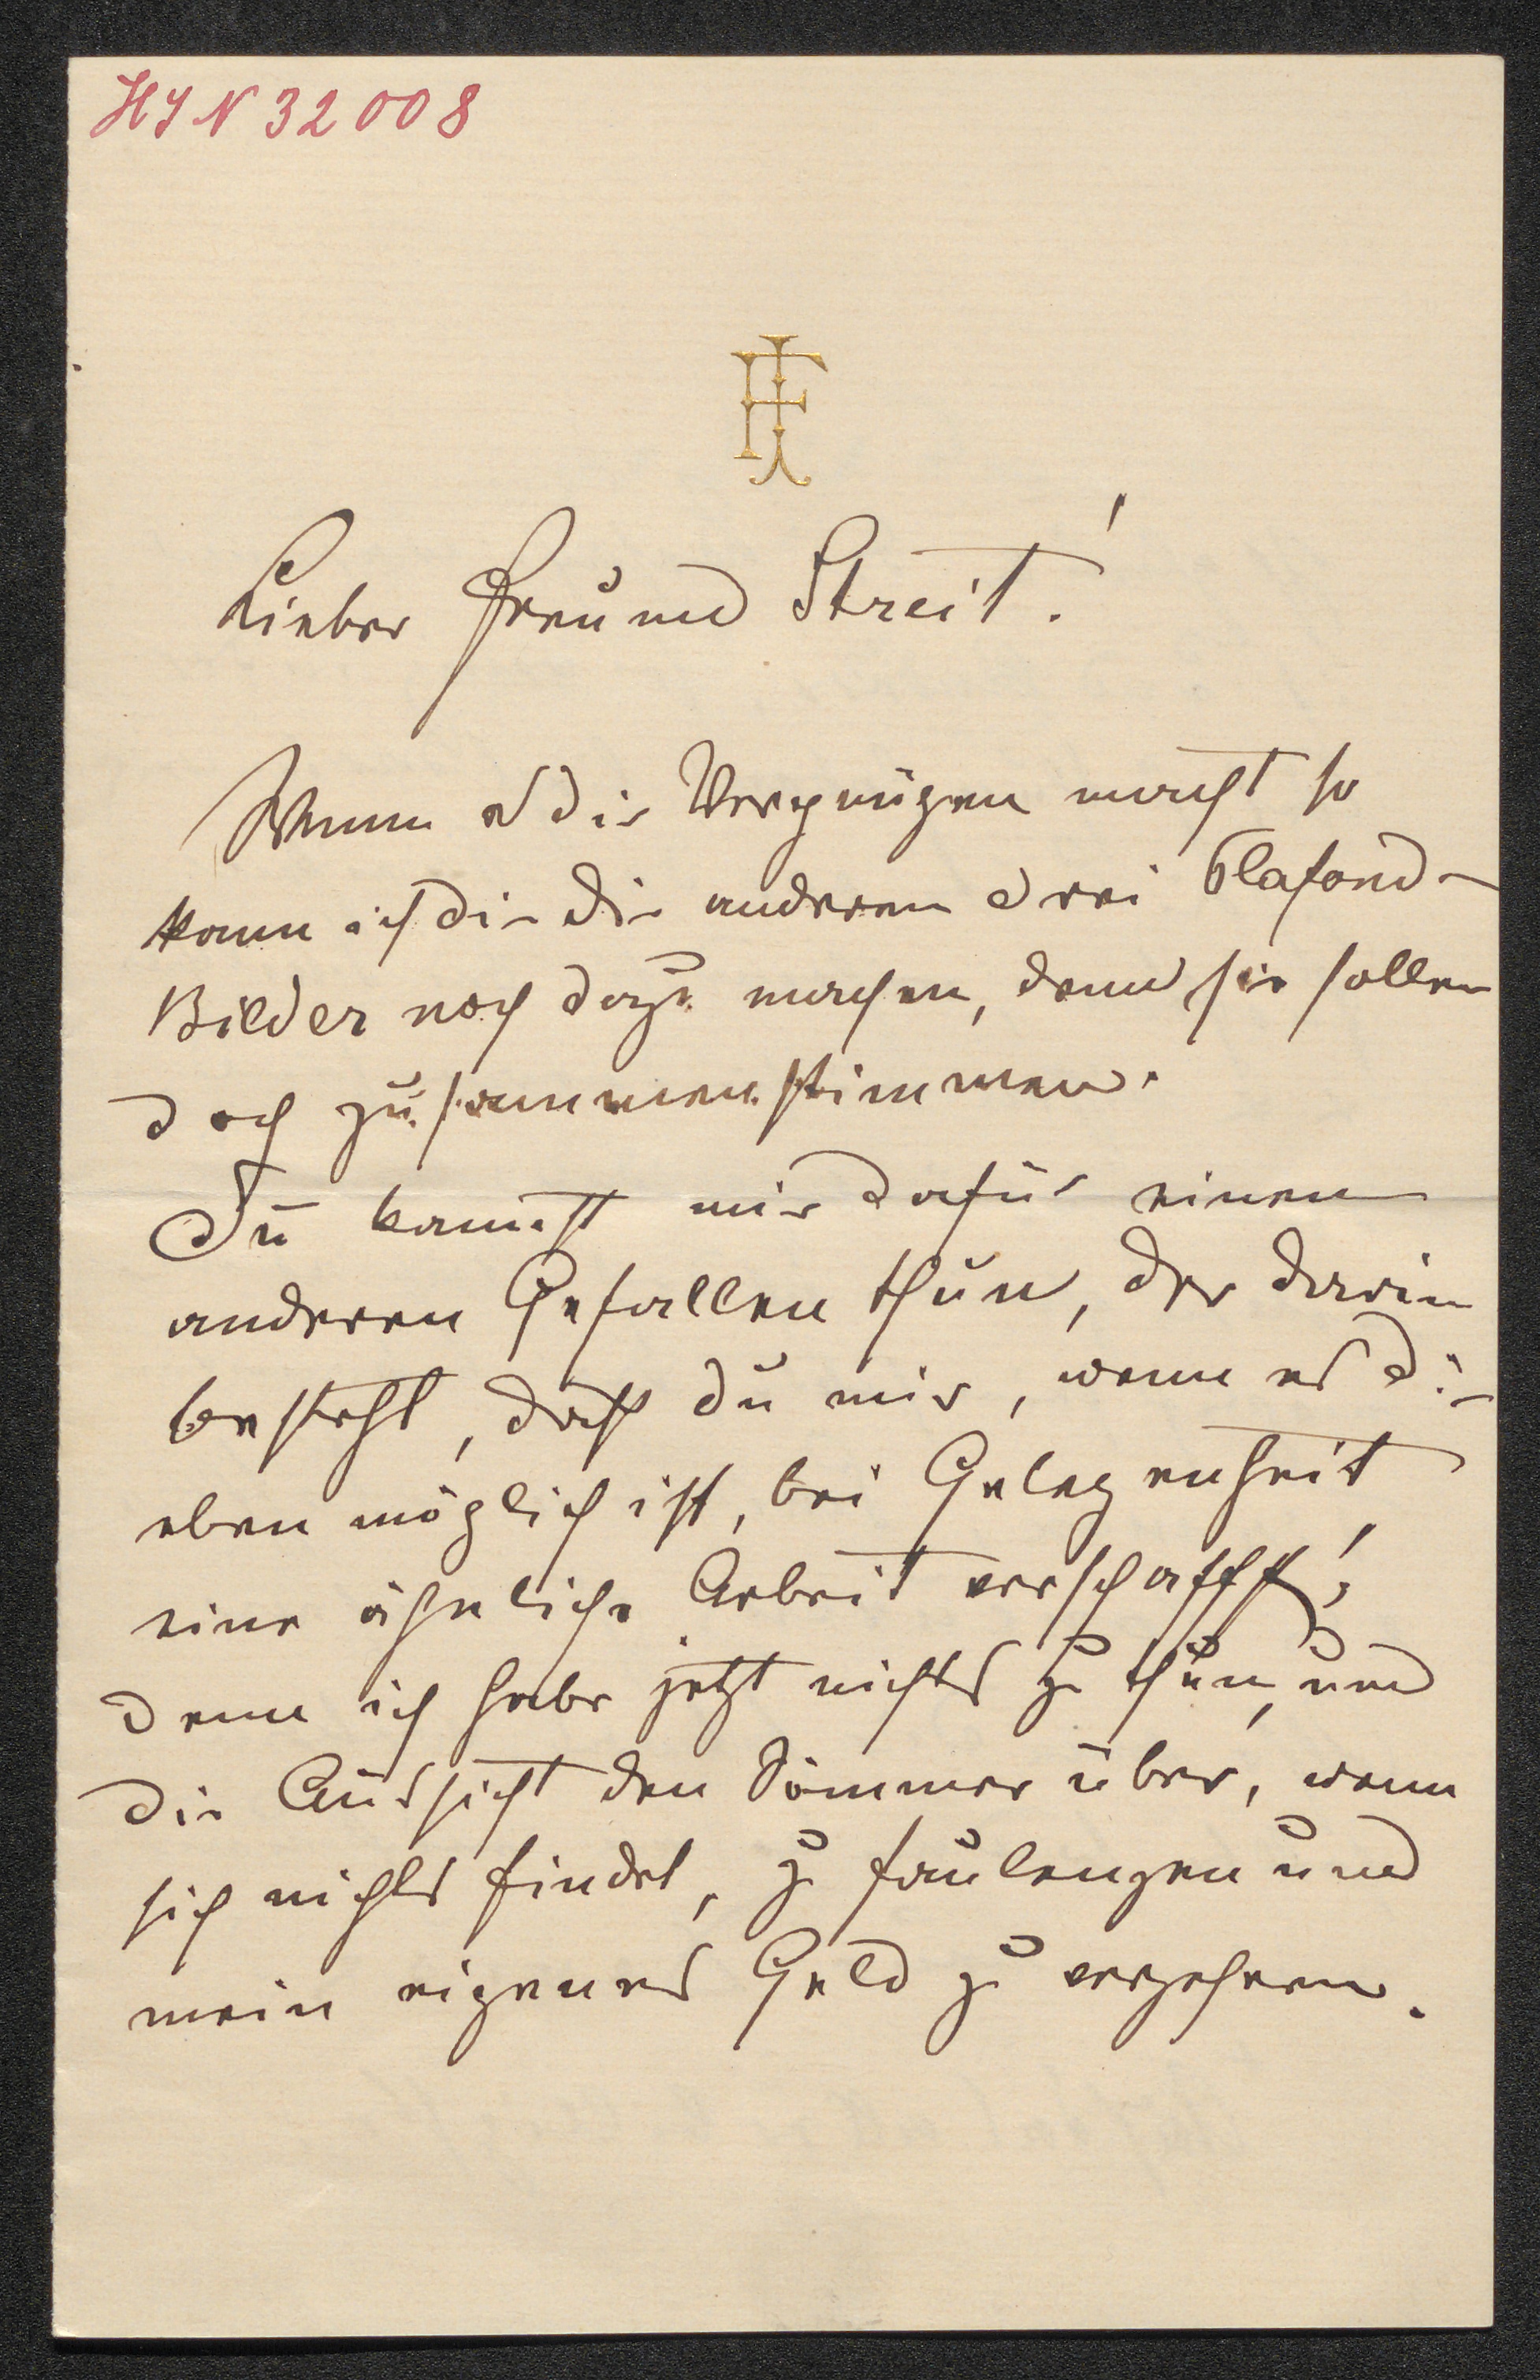 HIN 32008
Lieber Freund Streit!
Wenn es dir Vergnügen macht so
kann ich dir die anderen drei Plafond-
Bilder noch dazu machen, denn sie sollen
doch zusammenstimmen.
Du kannst mir dafür einen
anderen Gefallen thun, der darin
besteht, daß du mir, wenn es dir
eben möglich ist, bei Gelegenheit
eine ähnliche Arbeit verschaffst;
denn ich habe jetzt nichts zu thun, und
die Aussicht den Sommer über, wenn
sich nichts findet, zu faulenzen und
mein eigenes Geld zu verzehren.